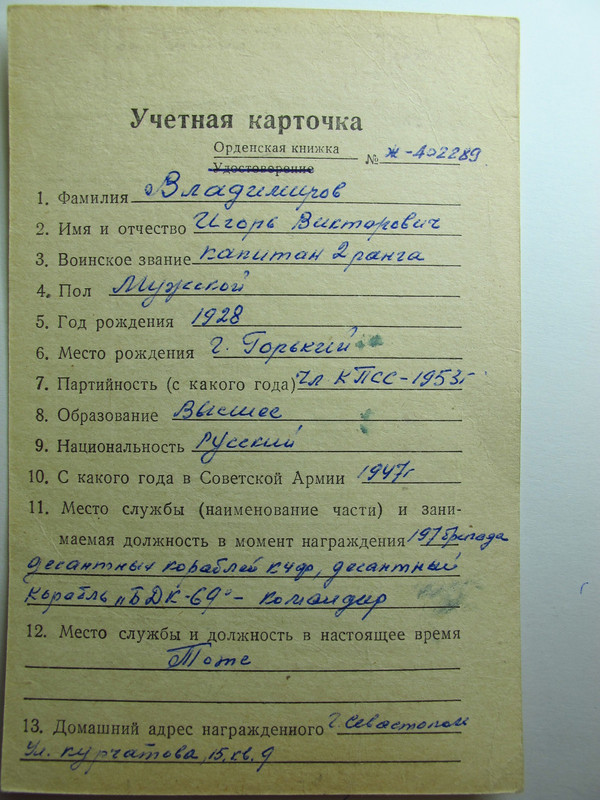 Учетная карточка
Орденская книжка
Удостоверение № Ж-402289
1. Фамилия Владимиров
2. Имя и отчество Игорь Викторович
3. Воинское звание капитан 2 ранга
4. Пол Мужской
5. Год рождения 1928
6. Место рождения г. Горький
7. Партийность (с какого года) Чл КПСС-1953г
8. Образование Высшее
9. Национальность Русский
10. С какого года в Советской Армии 1947г
11. Место службы (наименование части) и зани-
маемая должность в момент награждения 197 бригада
десантных кораблей КЧФ, десантный
корабль „БДК-69" - командир
12. Место службы и должность в настоящее время
Тоже
13. Домашний адрес награжденного г. Севастополь
ул. Курчатова, 15, кв. 9